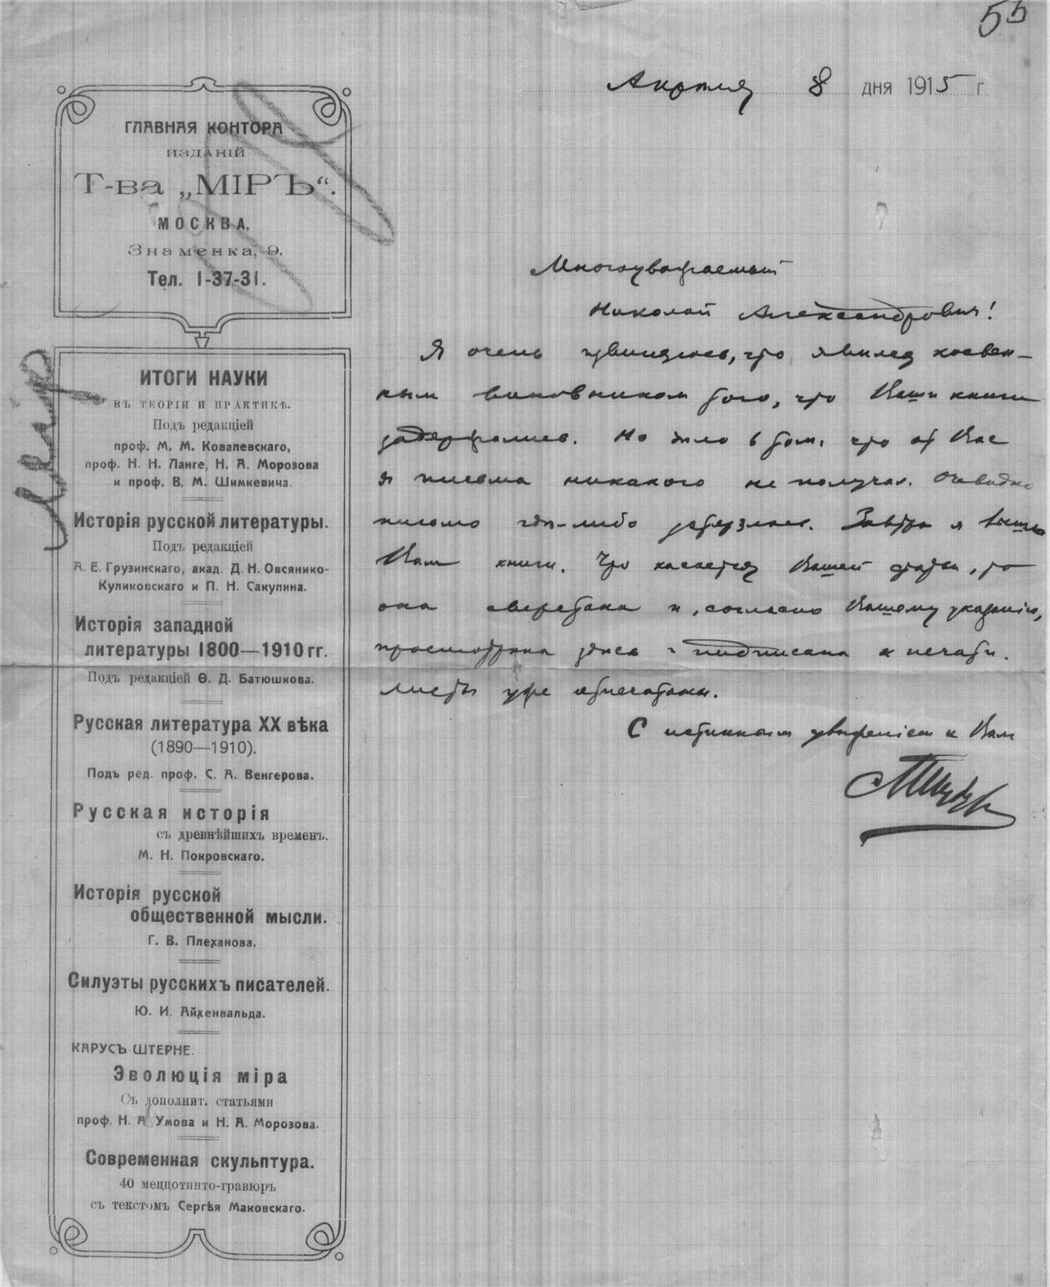 55
Апреля 8 дня 1915 г.
ГЛАВНАЯ КОНТОРА
ИЗДАНІЙ
Т-ва „МІРЪ“.
МОСКВА,
Знаменка, 9.
Тел. 1-37-31.
ИТОГИ НАУКИ
ВЪ ТЕОРІИ И ПРАКТИКѢ.
Подъ редакціей
проф. М. М. Ковалевскаго,
проф. Н. Н. Ланге, Н. А. Морозова
и проф. В. М. Шимкевича.
Исторія русской литературы.
Подъ редакціей
А. Е. Грузинскаго, акад. Д. Н. Овсянико-
Куликовскаго и П. Н. Сакулина.
Исторія западной
литературы 1800—1910 гг.
Подъ редакціей Ѳ. Д. Батюшкова.
Русская литература XX вѣка
(1890—1910).
Подъ ред. проф. С. А. Венгерова.
Русская исторія
съ древнѣйшихъ временъ.
М. Н. Покровскаго.
Исторія русской
общественной мысли.
Г. В. Плеханова.
Силуэты русскихъ писателей.
Ю. И. Айхенвальда.
КАРУСЪ ШТЕРНЕ.
Эволюція міра
Съ дополнит. статьями
проф. Н. А. Умова и Н. А. Морозова.
Современная скульптура.
40 меццотинто-гравюръ
съ текстомъ Сергѣя Маковскаго.
Многоуважаемый
Николай Александрович!
Я очень, что явился косвен-
ным виновником того, что Ваши книги
задержались. Но дело в том, что от Вас
я письма никакого не получал. Очевидно
письмо где-либо затерялось. Завтра я вышлю
Вам книги. Что касается Вашей статьи, то
она сверстана и, согласно Вашему указанію,
просмотрена здесь и подписана к печати.
Листы уже отпечатаны.
С истинным уваженіем к Вам